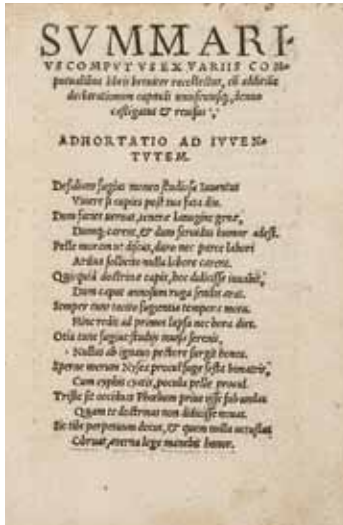 SVMMARI-
VS COMPVTVS EX VARIIS COM-
putualibus libris breuiter recollectus, cū additiōe
declarationum capituli uniuscuiusq;, denuo
castigatus & reuisus
ADHORTATIO AD IVVEN-
TVTEM.
Desidiam fugias moneo studiosa Iuuentus
Viuere si cupias post tua fata diu.
Dum facies uernat, teneræ lanugine genæ,
Dumq; carent, & dum feruidus humor adest.
Pelle moram ut discas, duro nec parce labori
Arduа sollicito nulla labore carent.
Quicquid doctrinæ capis, hoc didicisse iuuabit,
Dum caput annosum ruga senilis arat.
Semper enim tacito fugientia tempora
Hinc redit ad primos lapsa nec hora dies.
Otia tunc fugias studijs
Nullus ab ignauo pectore surgit honos.
Sperne merum procul fuge festa
Cum pocula pelle procul.
Triste sit occiduus Phœbum prius isse sub undas
Quam te doctrinas non didicisse
Sic tibi perpetuum decus, & quem nulla uetustas
Obruat, æterna lege manebit honor.